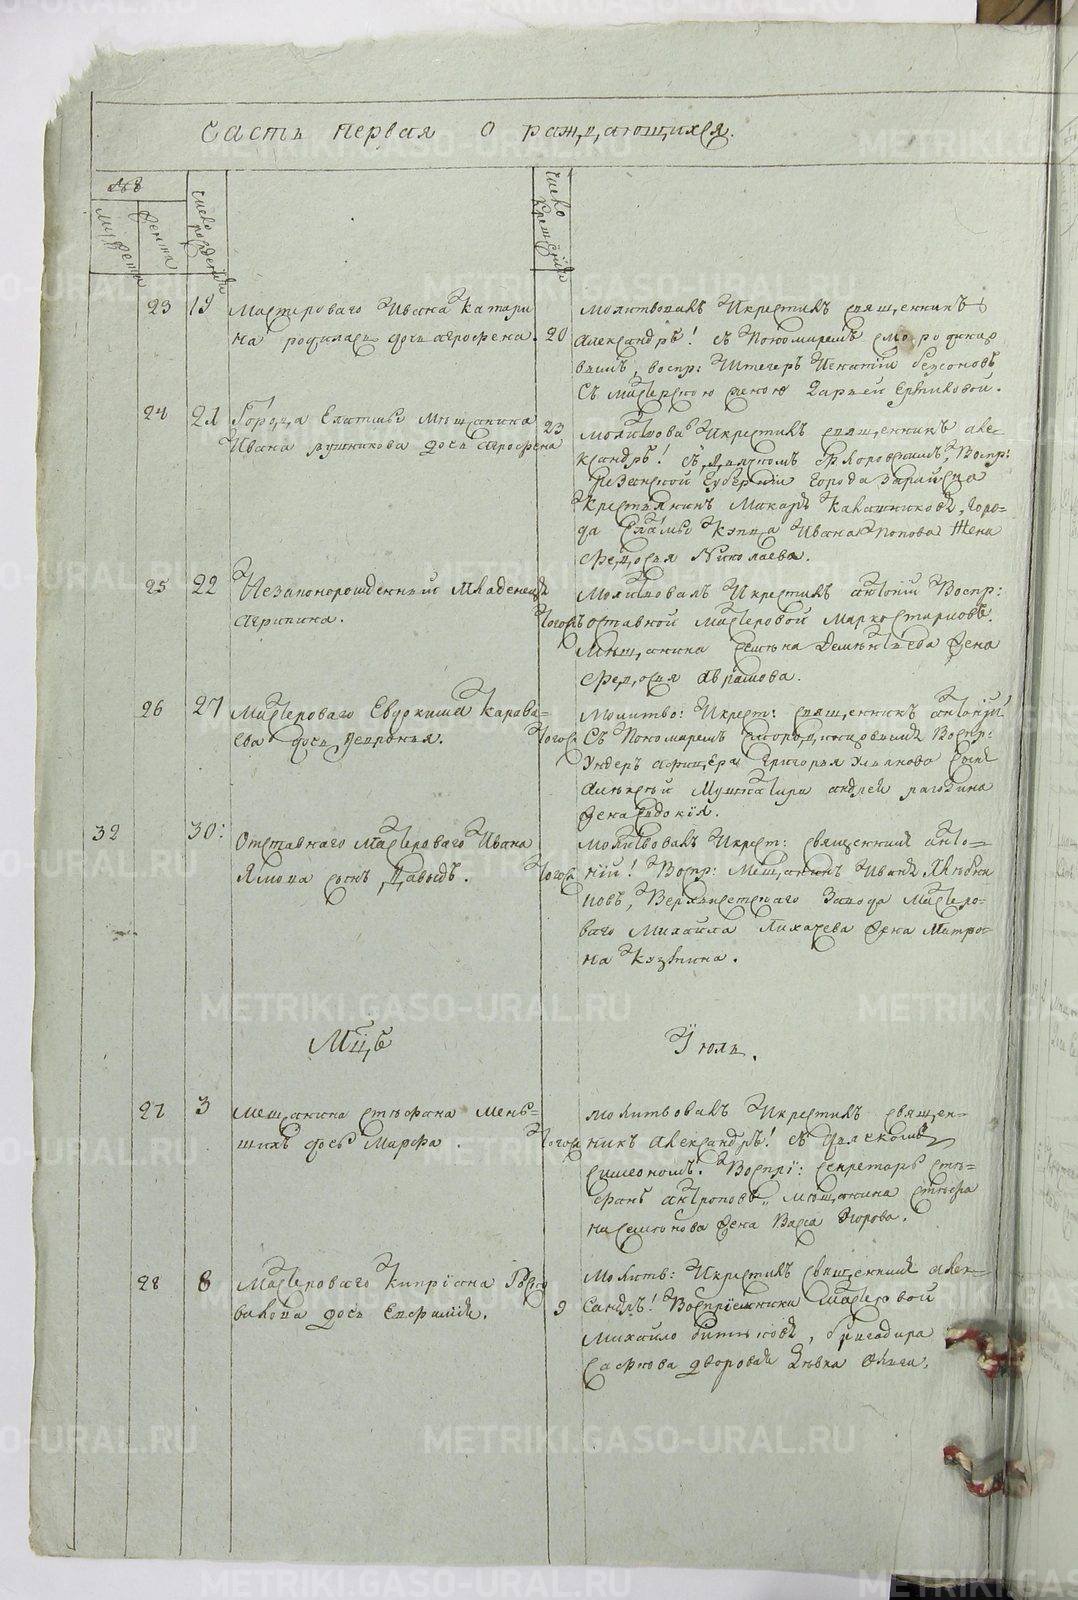 Часть первая о раждающихся.
№в
мужеска
женска
число рождения
число крещения
23 19 Мастероваго Ивана Катари
на родилась дочь агрофена. 20
молитвовалъ Икрестилъ священникъ
александръ! съ Пономаремъ
вымъ, воспр: Штегеръ Игнатий
Съ мастерскою женою Дарьей
24 21 Города Елатмы Мещанина
Ивана дочь агрофена 23
молитвова Икрестилъ священникъ але-
ксандръ! съ дьячкомъ Воспр:
резанской губернии города зарайска
Крестьянинъ Макаръ Калашниковъ, горо-
да Елатмы Купца Ивана Попова Жена
Федосья Николаева.
25 22 Незаконорожденный Младенецъ
агрипина. Тогожъ
Молитвовалъ Икрестилъ антоний Воспр:
отставной мастеровой Марко Стариовъ.
Мещанина Семена Деменьтьева Жена
Федосья Аврамова.
26 27 Мастероваго Евдокима Карава-
ева дочь Февронья. Тогожъ
Молитво: Икрест: священникъ антоний
Съ Пономаремъ Воспр:
Ундеръ афицера Григорья сынъ
Мушкатира андрей
Жена Евдокия.
32 30: Отставнаго мастероваго Ивана
сынъ Давыдъ. Тогожъ
молитвовалъ Икрест: священникъ анто-
ний! Воспр: Мещанинъ Иванъ
новъ, Верхъисетскаго Завода Мастеро-
ваго Михайла Лихачева Жена Матро-
на Кузмина.
Мцъ Июль.
27 3 Мещанина Стефана Мень-
шихъ дочь Марфа. Тогожъ
молитвовалъ Икрестилъ священ-
никъ александръ! съ дьячкомъ
Симеономъ. Воспри: Секретарь Сте-
фанъ антроповъ, мещанина Стефа
на Семенова Жена Васа Егорова.
28 8 Мастероваго Киприана
дочь Евфимия. 9
Молитв: Икрестилъ священникъ алек-
сандръ! Восприемники Мастеровой
Михайло, бригадира
дворовая Девка Олга.